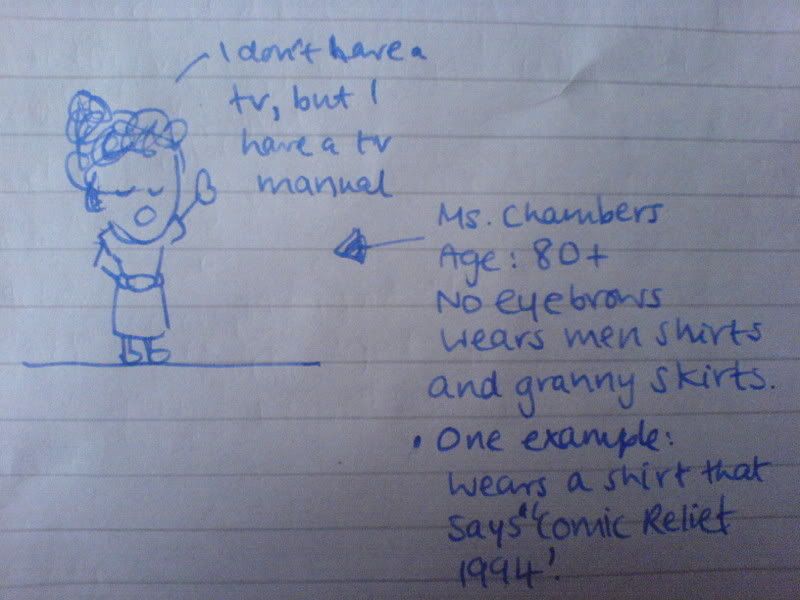 I don't have a
tv, but I
have a tv
manual
Ms. Chambers
Age: 80+
No eyebrows
wears men shirts
and granny skirts.
• One example:
wears a shirt that
says "Comic Relief
1994'.